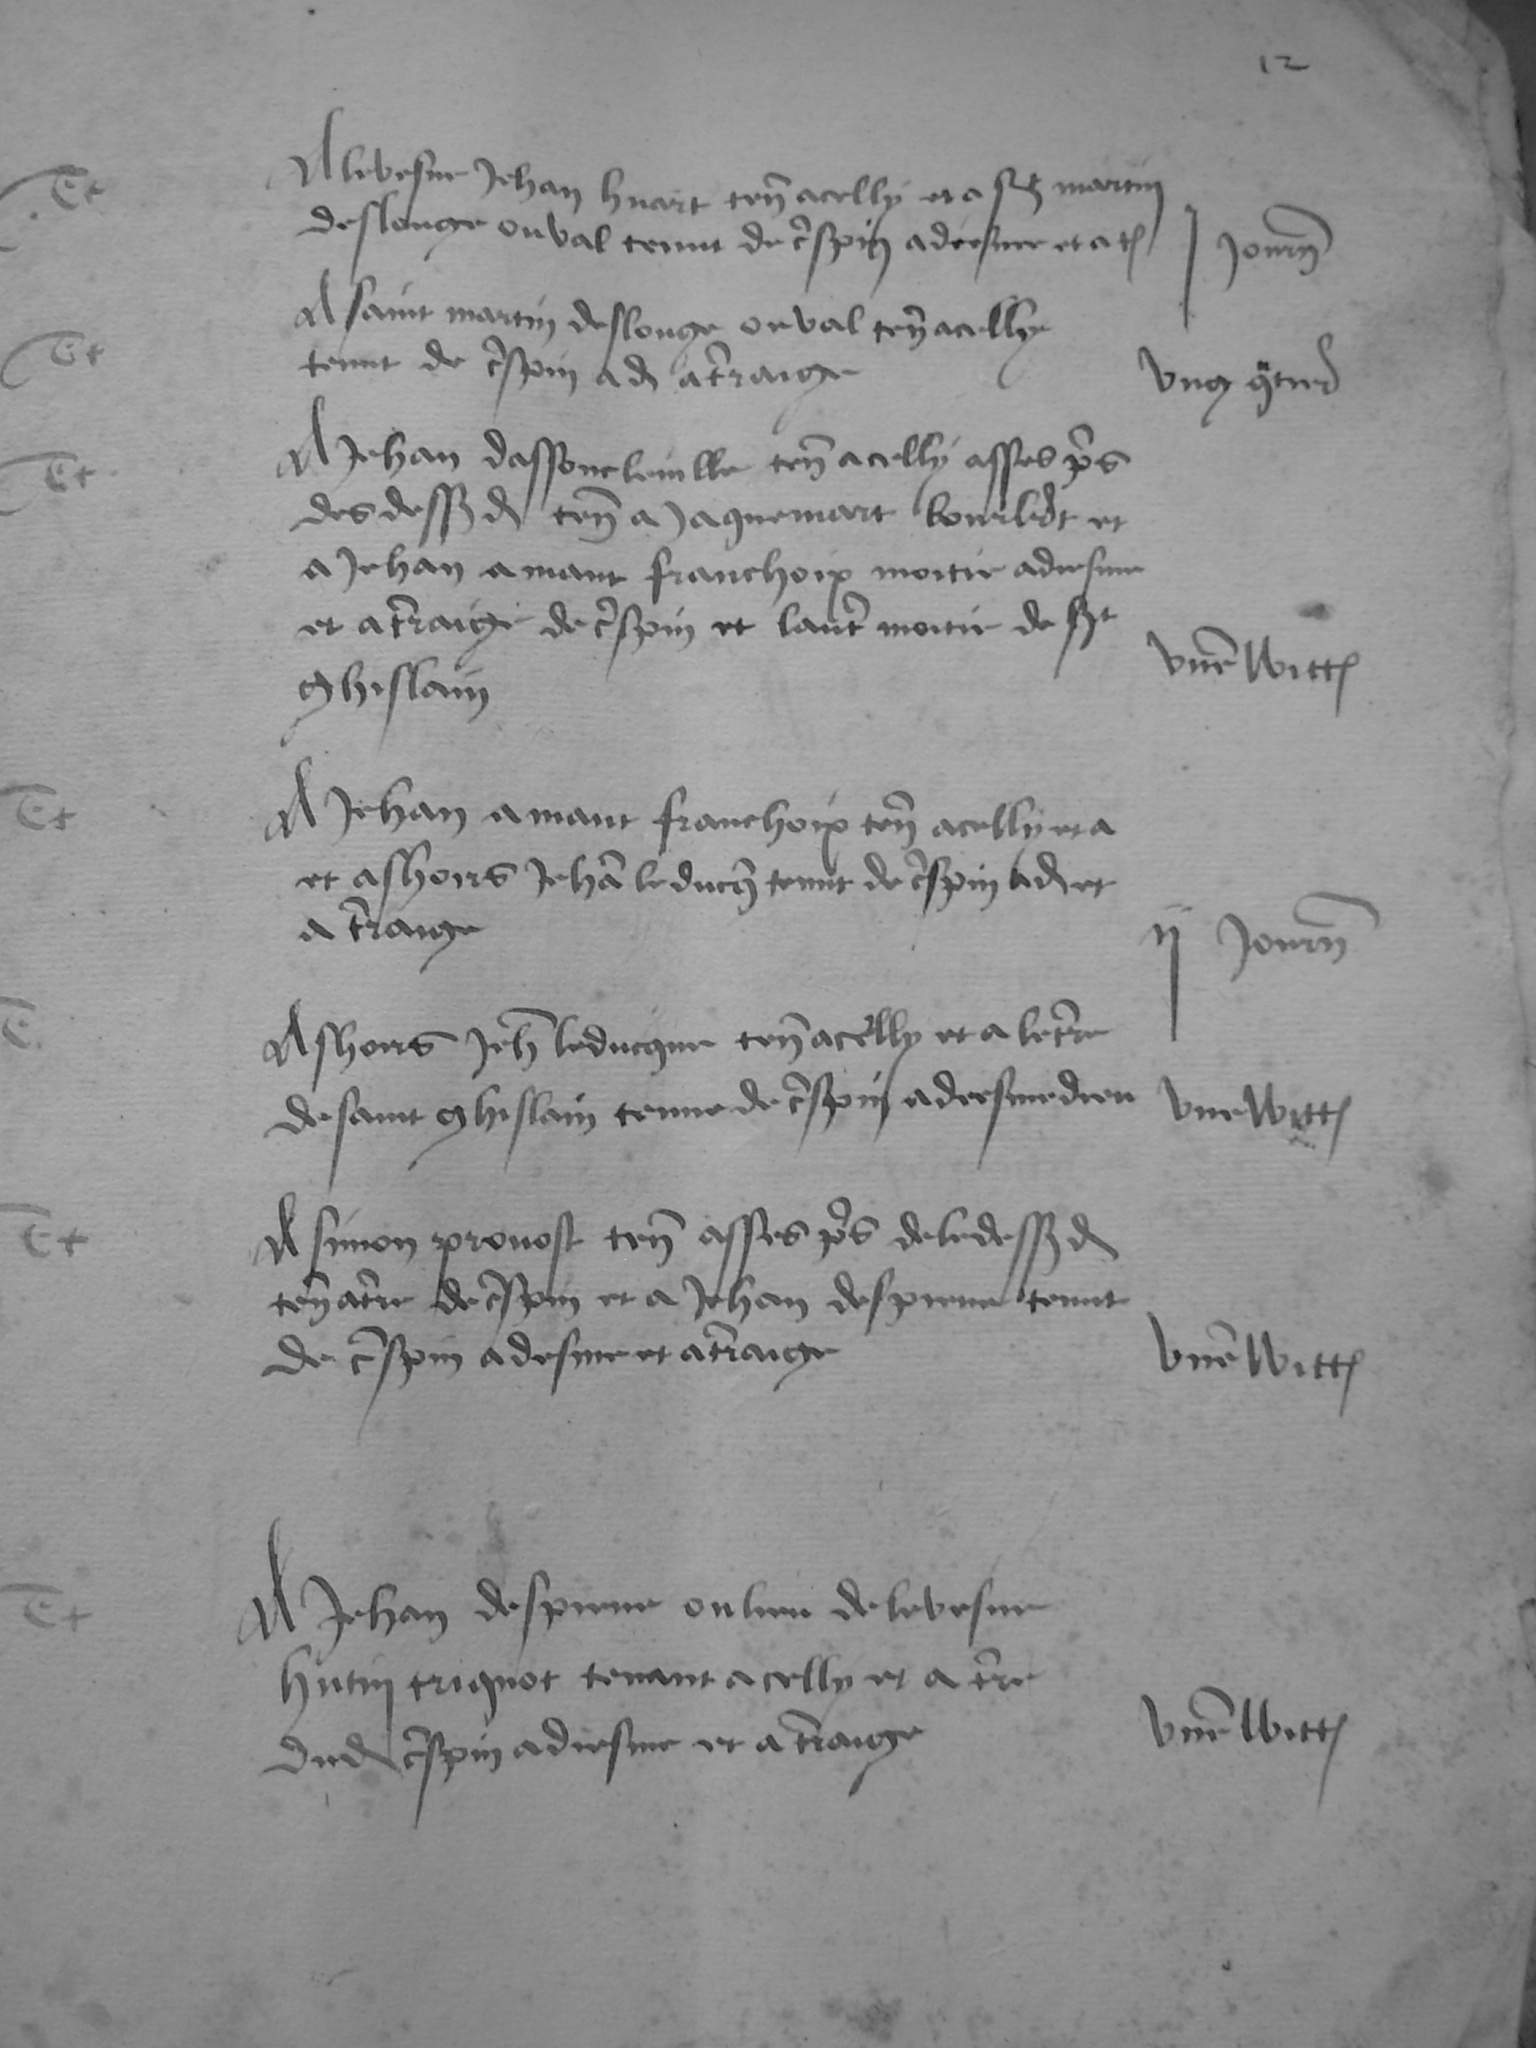 12
Et A levesve Jehan huart ten̄ acelly et a sᵗ martin
deslouge ou val tenut de c̄spin a deesme et a t̄ j Journ̄
Et A saint martin deslouge ou val ten̄ acelly
tenut de c̄spin a d̄ a t̄raige ung q̄tred
Et A Jehan dassoneleville ten̄ acelly asses p̄s
des dess d̄ ten̄ a Jaquemart et
a Jehan amant franchoix moitie a diesme
et a t̄raige de c̄spin et laut̄ moitie de st
ghislain vnē witt̄
Et A Jehan amant franchoix ten̄ acelly et a
et as hoirs Jehā leducq̄ tenut de c̄spin a d̄ et
a t̄raige ij Journ̄
E As hoirs Jeh̄ leducque ten̄ acelly et a le t̄re
de saint ghislain tenue de c̄spin a deesme dieu vne witt̄
Et A simon provost ten̄ asses p̄s dele dess d̄
ten̄ a t̄re de c̄spin et a Jehan despiene tenut
de c̄spin a desme et a t̄raige vnē witt̄
Et A Jehan despiene ou lieu de levesve
hutin triquot tenant acelly et a t̄re
dud̄ c̄spin a diesme et a t̄raige vnē witt̄